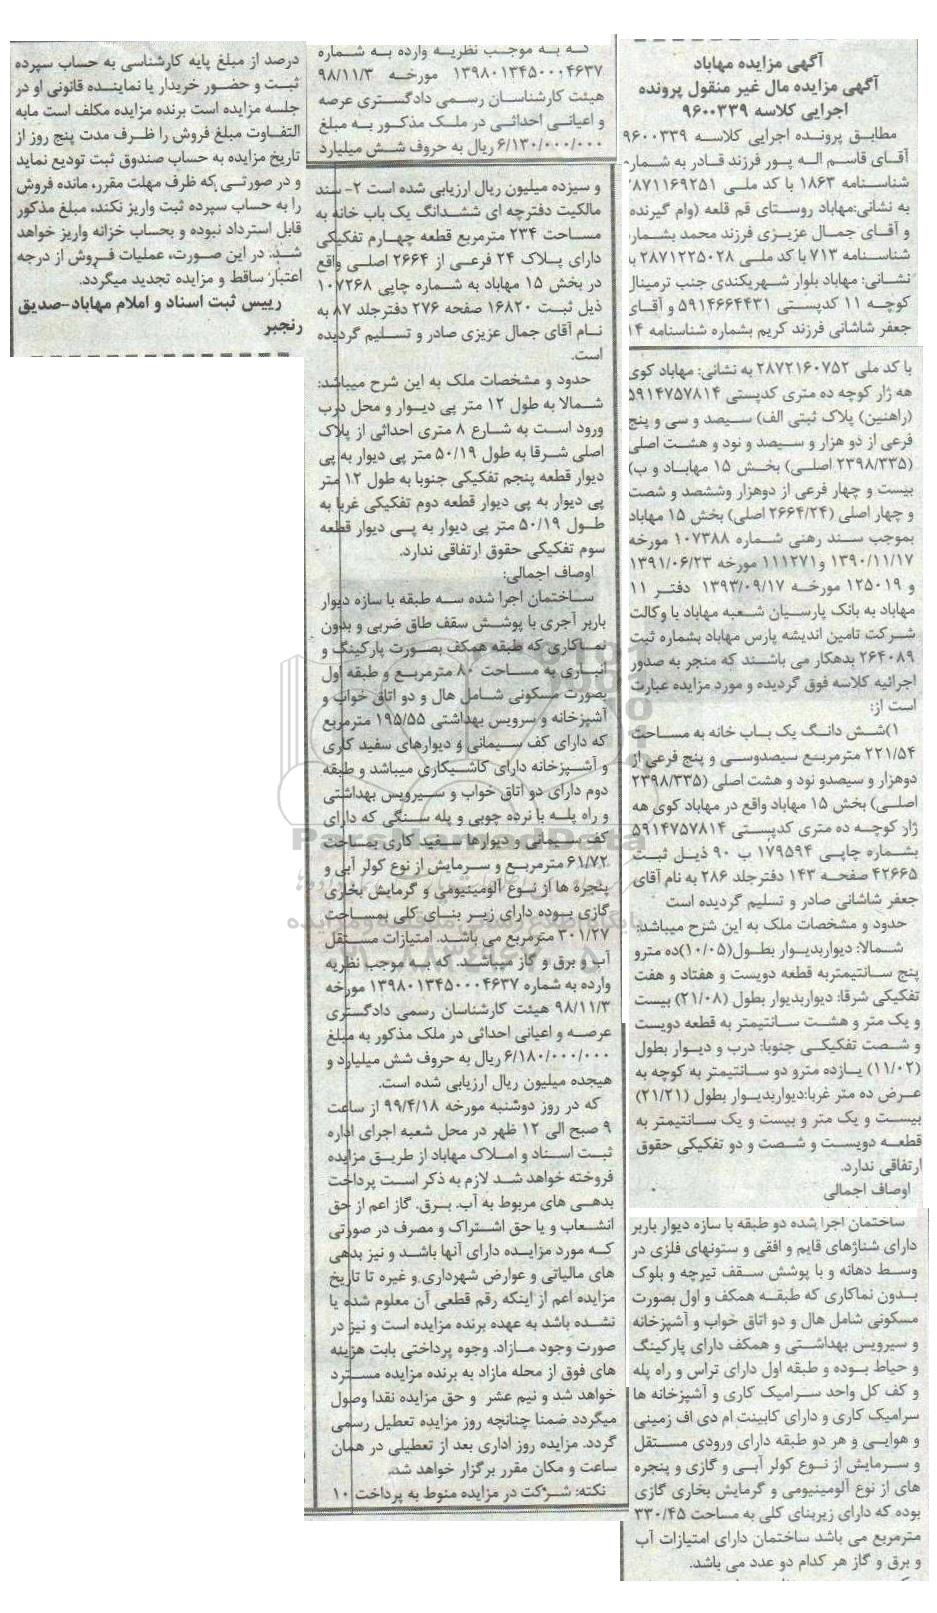 آگهی مزایده مهاباد
آگهی مزایده مال غیر منقول پرونده
اجرایی کلاسه ۹۶۰۰۳۳۹
مطابق پرونده اجرایی کلاسه ۹۶۰۰۳۳۹
آقای قاسم اله پور فرزند قادر به شماره
شناسنامه ۱۸۶۳ با کد ملی ۲۸۷۱۱۶۹۲۵۱
به نشانی:مهاباد روستای قم قلعه (وام گیرنده
و آقای جمال عزیزی فرزند محمد بشماره
شناسنامه ۷۱۳ با کد ملی ۲۸۷۱۲۲۵۰۲۸ به
نشانی: مهاباد بلوار شهریکندی جنب ترمینال
کوچه ۱۱ کدپستی ۵۹۱۴۶۶۴۴۳۱ و آقای
جعفر شاشانی فرزند کریم بشماره شناسنامه ۱۴
با کد ملی ۲۸۷۲۱۶۰۷۵۲ به نشانی: مهاباد کوی
هه ژار کوچه ده متری کدپستی ۵۹۱۴۷۵۷۸۱۴
(راهنین) پلاک ثبتی الف) سیصد و سی و پنج
فرعی از دو هزار و سیصد و نود و هشت اصلی
(۲۳۹۸/۳۳۵ اصلی) بخش ۱۵ مهاباد و ب)
بیست و چهار فرعی از دوهزار وششصد و شصت
و چهار اصلی (۲۶۶۴/۲۴ اصلی) بخش ۱۵ مهاباد
بموجب سند رهنی شماره ۱۰۷۳۸۸ مورخه
۱۳۹۰/۱۱/۱۷ و۱۱۱۲۷۱ مورخه ۱۳۹۱/۰۶/۲۳
و ۱۲۵۰۱۹ مورخه ۱۳۹۳/۰۹/۱۷ دفتر ۱۱
مهاباد به بانک پارسیان شعبه مهاباد با وکالت
شرکت تامین اندیشه پارس مهاباد بشماره ثبت
۲۶۴۰۸۹ بدهکار می باشند که منجر به صدور
اجرائیه کلاسه فوق گردیده و مورد مزایده عبارت
است از:
۱)شش دانگ یک باب خانه به مساحت
۲۲۱/۵۴ مترمربع سیصدوسی و پنج فرعی از
دوهزار و سیصدو نود و هشت اصلی (۲۳۹۸/۳۳۵
اصلی) بخش ۱۵ مهاباد واقع در مهاباد کوی هه
ژار کوچه ده متری کدپستی ۵۹۱۴۷۵۷۸۱۴
بشماره چاپی ۱۷۹۵۹۴ ب ۹۰ ذیل ثبت
۴۲۶۶۵ صفحه ۱۴۳ دفترجلد ۲۸۶ به نام آقای
جعفر شاشانی صادر و تسلیم گردیده است
حدود و مشخصات ملک به این شرح میباشد:
شمالا: دیواربدیوار بطول(۱۰/۰۵)ده مترو
پنج سانتیمتربه قطعه دویست و هفتاد و هفت
تفکیکی شرقا: دیواربدیوار بطول (۲۱/۰۸) بیست
و یک متر و هشت سانتیمتر به قطعه دویست
و شصت تفکیکی جنوبا: درب و دیوار بطول
(۱۱/۰۲) یازده مترو دو سانتیمتر به کوچه به
عرض ده متر غربا:دیواربدیوار بطول (۲۱/۲۱)
بیست و یک متر و بیست و یک سانتیمتر به
قطعه دویست و شصت و دو تفکیکی حقوق
ارتفاقی ندارد.
اوصاف اجمالی
ساختمان اجرا شده دو طبقه با سازه دیوار باربر
دارای شناژهای قایم و افقی و ستونهای فلزی در
وسط دهانه و با پوشش سقف تیرچه و بلوک
بدون نماکاری که طبقه همکف و اول بصورت
مسکونی شامل هال و دو اتاق خواب و آشپزخانه
و سیرویس بهداشتی و همکف دارای پارکینگ
و حیاط بوده و طبقه اول دارای تراس و راه پله
و کف کل واحد سرامیک کاری و آشپزخانه ها
سرامیک کاری و دارای کابینت ام دی اف زمینی
و هوایی و هر دو طبقه دارای ورودی مستقل
و سرمایش از نوع کولر آبی و گازی و پنجره
های از نوع آلومینیومی و گرمایش بخاری گازی
بوده که دارای زیربنای کلی به مساحت ۳۳۰/۴۵
مترمربع می باشد ساختمان دارای امتیازات آب
و برق و گاز هر کدام دو عدد می باشد.
که به موجب نظریه وارده به شماره
۱۳۹۸۰۱۳۴۵۰۰۰۴۶۳۷ مورخه ۹۸/۱۱/۳
هیئت کارشناسان رسمی دادگستری عرصه
و اعیانی احداثی در ملک مذکور به مبلغ
۶/۱۳۰/۰۰۰/۰۰۰ ریال به حروف شش میلیارد
و سیزده میلیون ریال ارزیابی شده است ۲- سند
مالکیت دفترچه ای ششدانگ یک باب خانه به
مساحت ۲۳۴ مترمربع قطعه چهارم تفکیکی
دارای پلاک ۲۴ فرعی از ۲۶۶۴ اصلی واقع
در بخش ۱۵ مهاباد به شماره چاپی ۱۰۷۲۶۸
ذیل ثبت ۱۶۸۲۰ صفحه ۲۷۶ دفترجلد ۸۷ به
نام آقای جمال عزیزی صادر و تسلیم گردیده
است.
حدود و مشخصات ملک به این شرح میباشد:
شمالا به طول ۱۲ متر پی دیوار و محل درب
ورود است به شارع ۸ متری احداثی از پلاک
اصلی شرقا به طول ۵۰/۱۹ متر پی دیوار به پی
دیوار قطعه پنجم تفکیکی جنوبا به طول ۱۲ متر
پی دیوار به پی دیوار قطعه دوم تفکیکی غربا به
طول ۵۰/۱۹ متر پی دیوار به پی دیوار قطعه
سوم تفکیکی حقوق ارتفاقی ندارد.
اوصاف اجمالی:
ساختمان اجرا شده سه طبقه با سازه دیوار
باربر آجری با پوشش سقف طاق ضربی و بدون
نماکاری که طبقه همکف بصورت پارکینگ و
انباری به مساحت ۸۰ مترمربع و طبقه اول
بصورت مسکونی شامل هال و دو اتاق خواب و
آشپزخانه و سرویس بهداشتی ۱۹۵/۵۵ مترمربع
که دارای کف سیمانی و دیوارهای سفید کاری
و آشپزخانه دارای کاشیکاری میباشد و طبقه
دوم دارای دو اتاق خواب و سیرویس بهداشتی
و راه پله با نرده چوبی و پله سنگی که دارای
کف سیمانی و دیوارها سفید کاری بمساحت
۶۱/۷۲ مترمربع و سرمایش از نوع کولر آبی و
پنجره ها از نوع آلومینیومی و گرمایش بخاری
گازی بوده دارای زیر بنای کلی بمساحت
۳۰۱/۲۷ مترمربع می باشد. امتیازات مستقل
آب و برق و گاز میباشد. که به موجب نظریه
وارده به شماره ۱۳۹۸۰۱۳۴۵۰۰۰۴۶۳۷ مورخه
۹۸/۱۱/۳ هیئت کارشناسان رسمی دادگستری
عرصه و اعیانی احداثی در ملک مذکور به مبلغ
۶/۱۸۰/۰۰۰/۰۰۰ ریال به حروف شش میلیارد و
هیجده میلیون ریال ارزیابی شده است.
که در روز دوشنبه مورخه ۹۹/۴/۱۸ از ساعت
۹ صبح الی ۱۲ ظهر در محل شعبه اجرای اداره
ثبت اسناد و املاک مهاباد از طریق مزایده
فروخته خواهد شد لازم به ذکر است پرداخت
بدهی های مربوط به آب. برق. گاز اعم از حق
انشعاب و یا حق اشتراک و مصرف در صورتی
که مورد مزایده دارای آنها باشد و نیز بدهی
های مالیاتی و عوارض شهرداری و غیره تا تاریخ
مزایده اعم از اینکه رقم قطعی آن معلوم شده یا
نشده باشد به عهده برنده مزایده است و نیز در
صورت وجود مازاد. وجوه پرداختی بابت هزینه
های فوق از محله مازاد به برنده مزایده مسترد
خواهد شد و نیم عشر و حق مزایده نقدا وصول
میگردد ضمنا چنانچه روز مزایده تعطیل رسمی
گردد. مزایده روز اداری بعد از تعطیلی در همان
ساعت و مکان مقرر برگزار خواهد شد.
نکته: شرکت در مزایده منوط به پرداخت ۱۰
درصد از مبلغ پایه کارشناسی به حساب سپرده
ثبت و حضور خریدار یا نماینده قانونی او در
جلسه مزایده است برنده مزایده مکلف است مابه
التفاوت مبلغ فروش را ظرف مدت پنج روز از
تاریخ مزایده به حساب صندوق ثبت تودیع نماید
و در صورتی که ظرف مهلت مقرر، مانده فروش
را به حساب سپرده ثبت واریز نکند، مبلغ مذکور
قابل استرداد نبوده و بحساب خزانه واریز خواهد
شد. در این صورت، عملیات فروش از درجه
اعتبار ساقط و مزایده تجدید میگردد.
رییس ثبت اسناد و املام مهاباد-صدیق
رنجبر
ParsNamadData